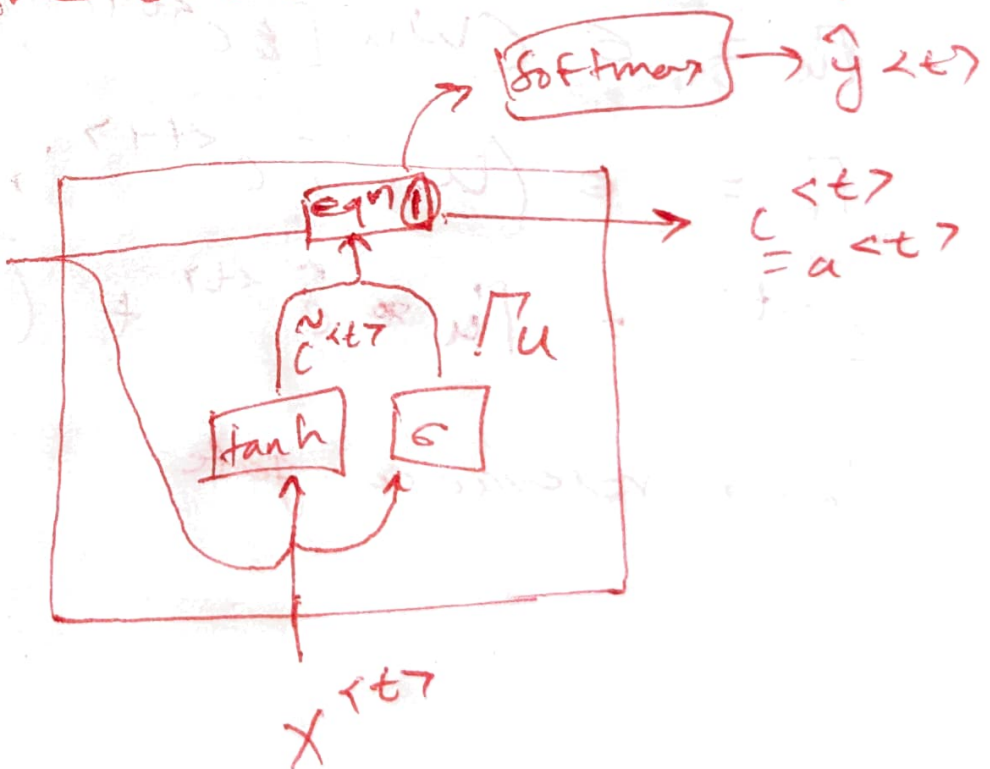 softmax → ŷ<t>
eqn ①
c<t>
= a<t>
c̃<t>
Γu
tanh
σ
x<t>